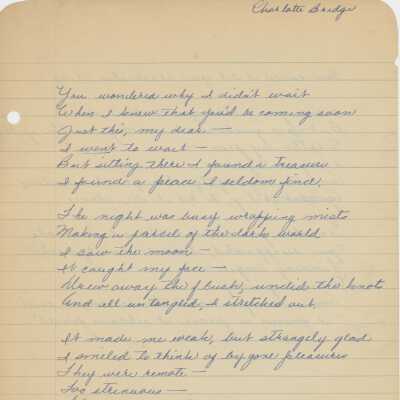 Charlotte Bridge
You wondered why I didn't wait
When I knew that you'd be coming soon
Just this, my dear —
I went to wait —
But sitting there I found a treasure
I found a peace I seldom find.
The night was busy wrapping mists
Making a parcel of the dark world
I saw the moon —
It caught my face —
Drew away the flush, untied the knots
And all untangled, I stretched out.
It made me weak, but strangely glad
I smiled to think of bygone pleasures
They were remote —
Too strenuous —